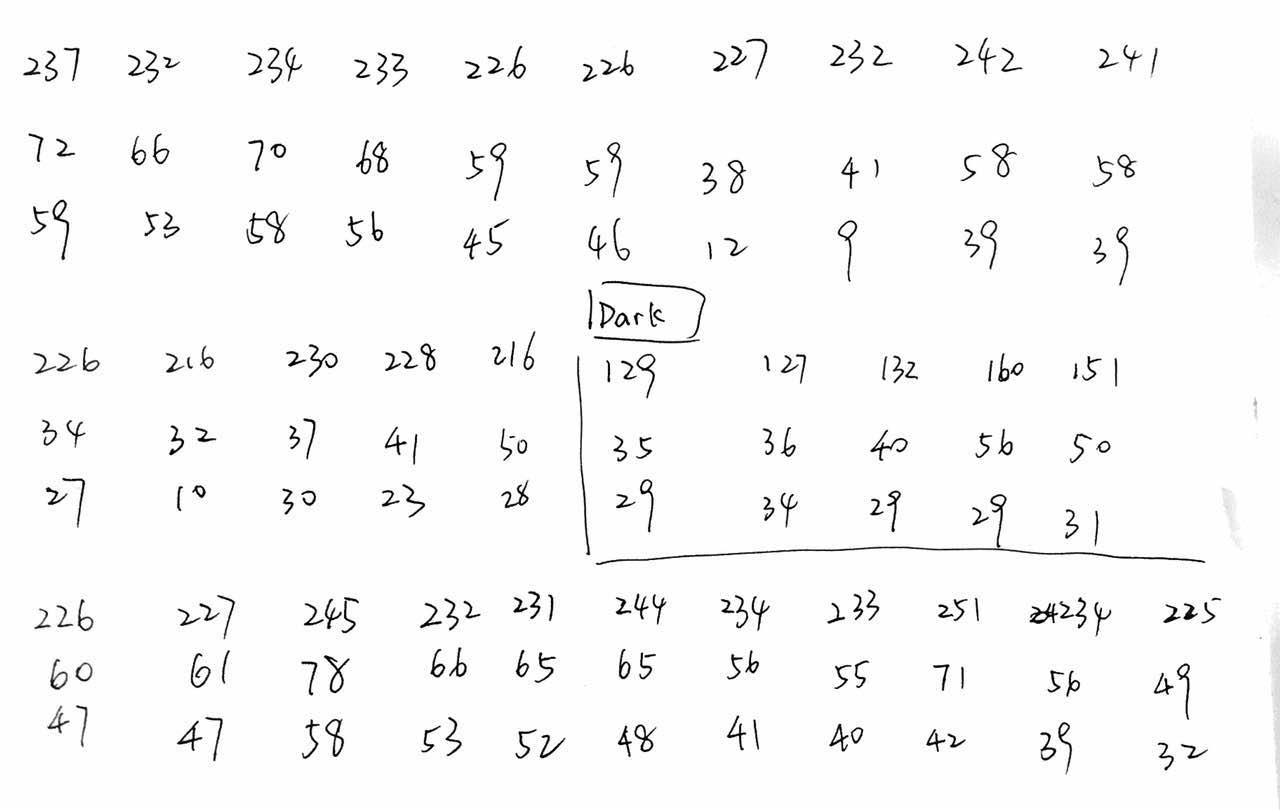 237 232 234 233 226 226 227 232 242 241
72 66 70 68 59 59 38 41 58 58
59 53 58 56 45 46 12 9 39 39
Dark
226 216 230 228 216 129 127 132 160 151
34 32 37 41 50 35 36 40 56 50
27 10 30 23 28 29 34 29 29 31
226 227 245 232 231 244 234 233 251 234 225
60 61 78 66 65 65 56 55 71 56 49
47 47 58 53 52 48 41 40 42 39 32